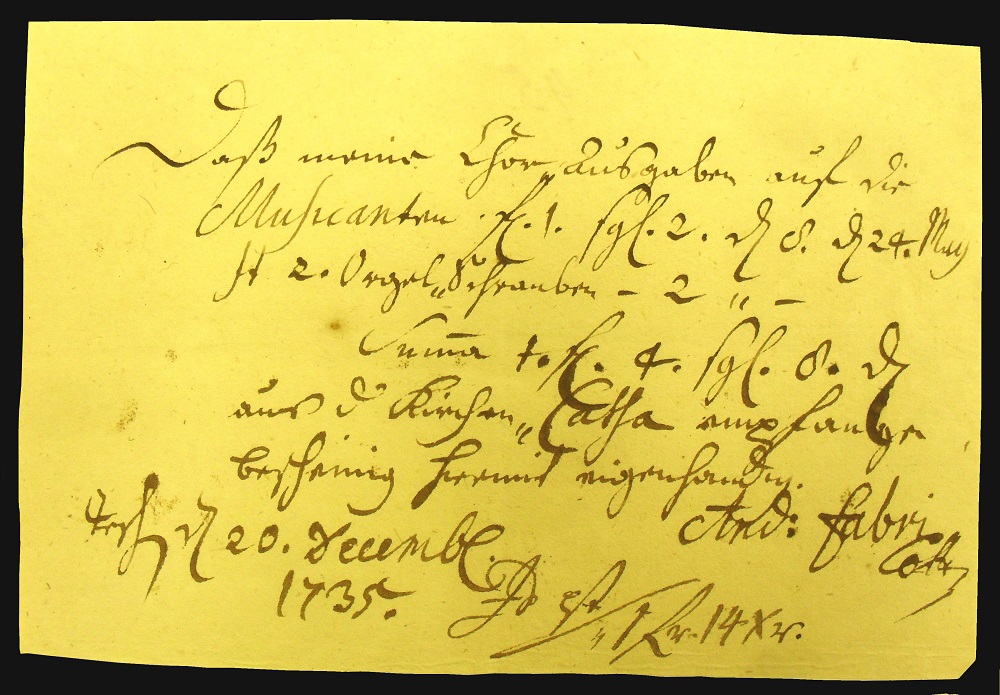 Daß meine Chor„Ausgaben auf die
Musicanten fl. 1. sgl. 2. d 8. d 24. May
It 2. Orgel„Schrauben – 2 „ –
Summa 1. fl. 4. sgl. 8. d
aus d Kirchen„Cassa empfangen
bescheinig hiermit eigenhändig.
d 20. Decembr.
And: Fabri.
1735.
1 fr. 14 Xr.